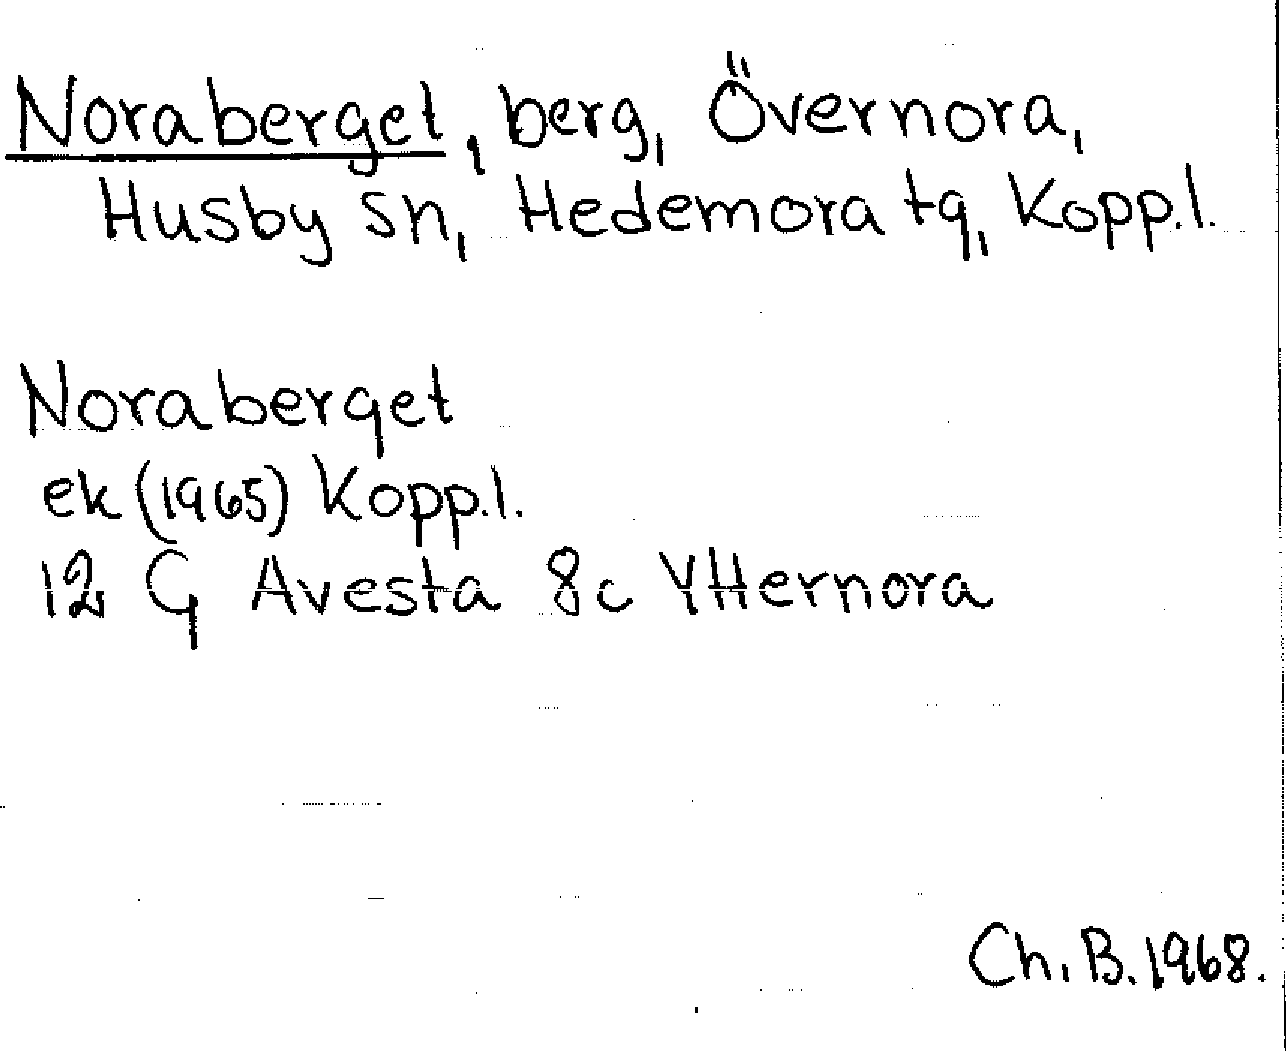 Noraberget, berg, Övernora,
Husby sn, Hedemora tg, Kopp.l.
Noraberget
ek (1965) Kopp.l.
12 G Avesta 8c Ytternora
Ch. B. 1968.